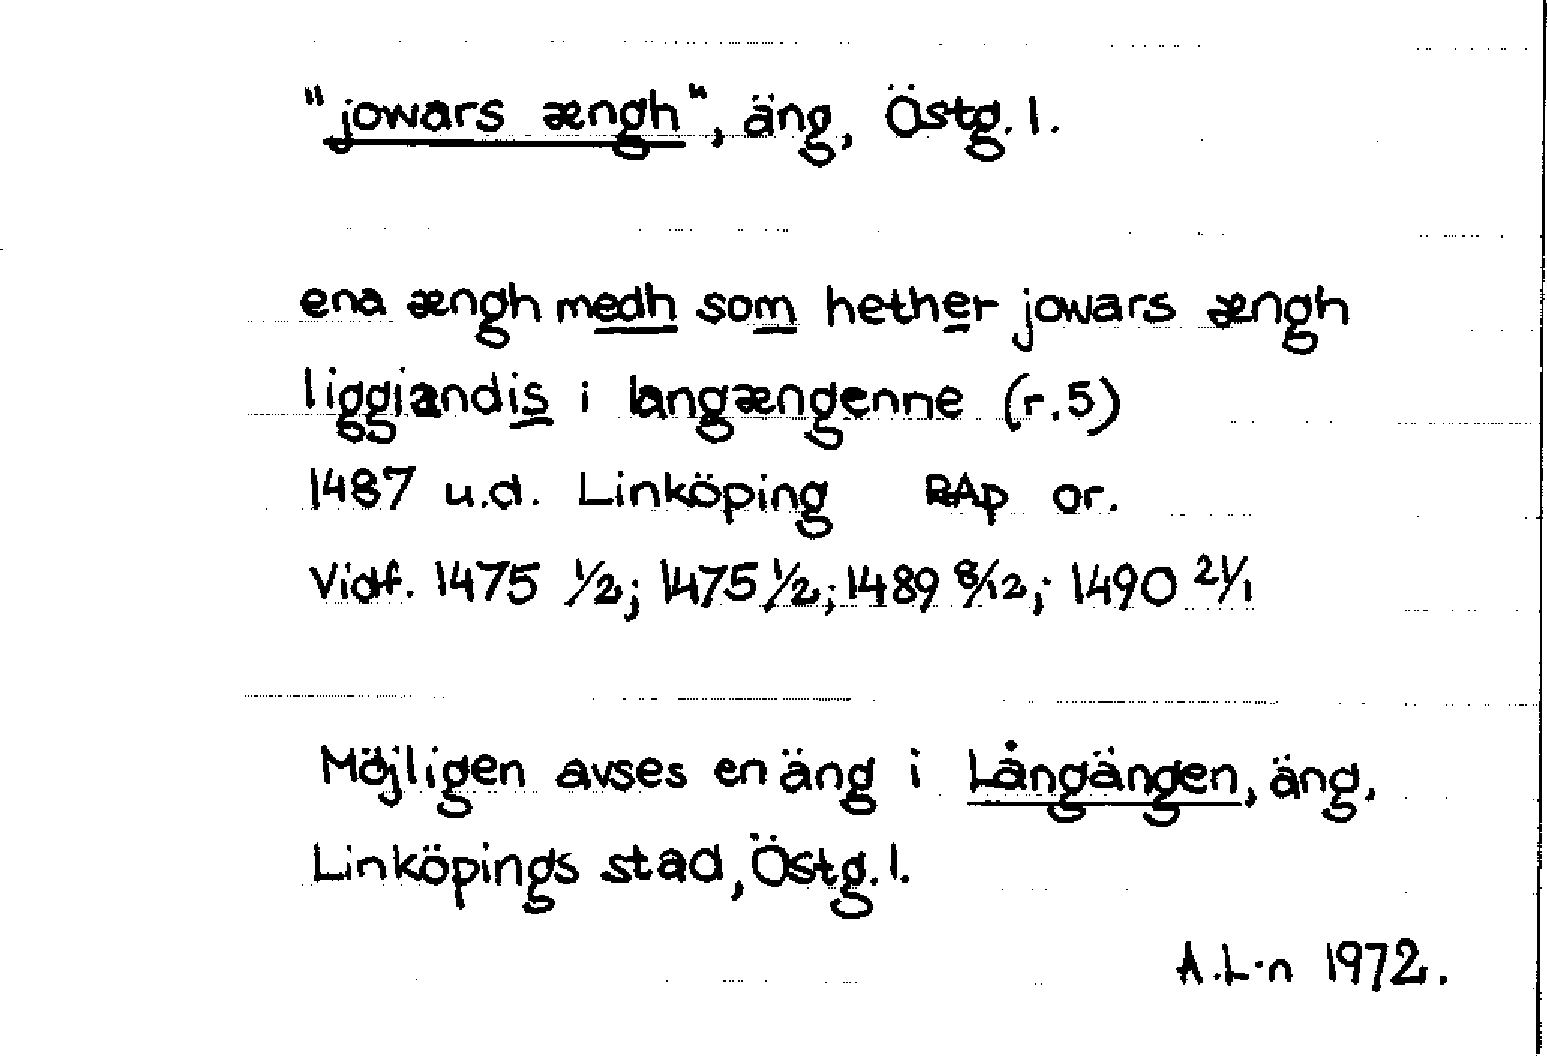 "jowars ængh", äng, Östg. l.
ena ængh medh som hether jowars ængh
liggiandis i langængenne (r.5)
1487 u.d. Linköping RAp or.
Vidf. 1475 1/2; 1475 1/2; 1489 8/12; 1490 21/1
Möjligen avses en äng i Långängen, äng,
Linköpings stad, Östg. l.
A.L-n 1972.